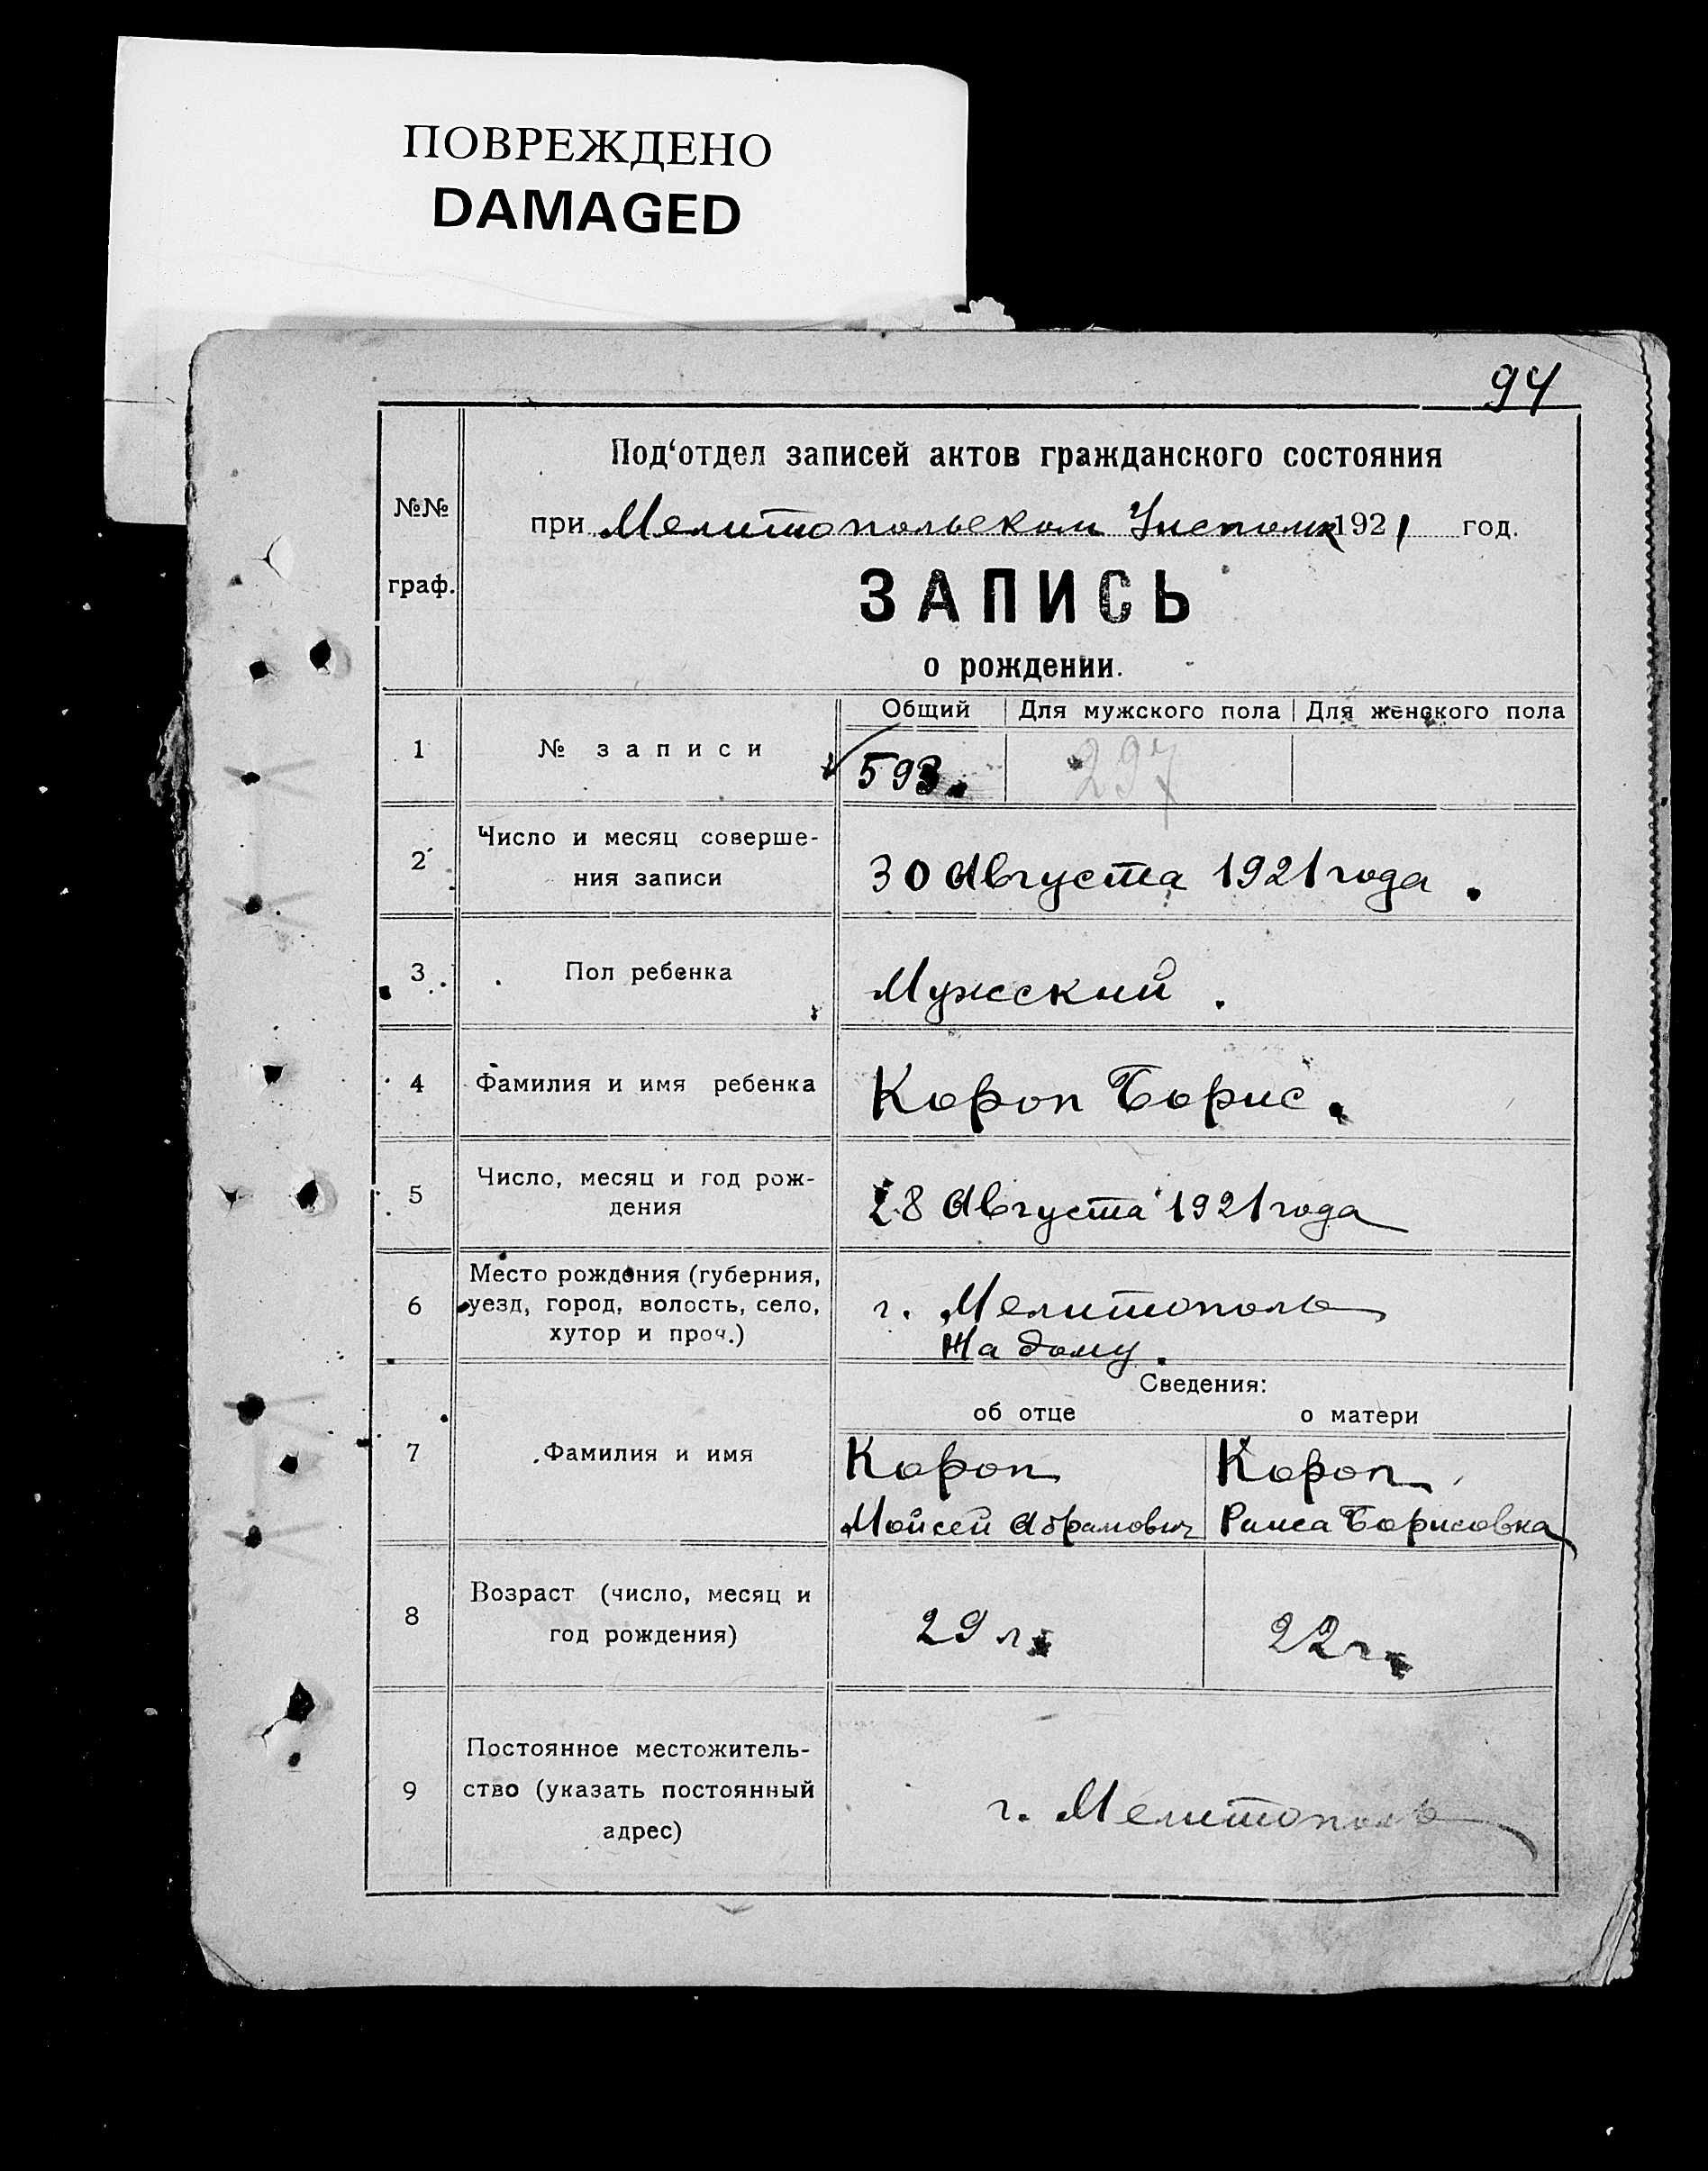 ПОВРЕЖДЕНО
DAMAGED
94
№№
граф.
Под‘отдел записей актов гражданского состояния
при Мелитопольском Уисполк 1921 год.
ЗАПИСЬ
о рождении.
Общий Для мужского пола Для женского пола
1 № записи 593. 297
2 Число и месяц соверше-
ния записи
30 Августа 1921 года.
3 Пол ребенка Мужский.
4 Фамилия и имя ребенка Короп Борис.
5 Число, месяц и год рож-
дения
28 Августа 1921 года
6 Место рождения (губерния,
уезд, город, волость, село,
хутор и проч.)
г. Мелитополь
На дому.
Сведения:
об отце о матери
7 Фамилия и имя
Короп Короп
Мойсей Абрамович Раиса Борисовна
8 Возраст (число, месяц и
год рождения)
29 л. 22 г.
9 Постоянное местожитель-
ство (указать постоянный
адрес)
г. Мелитополь